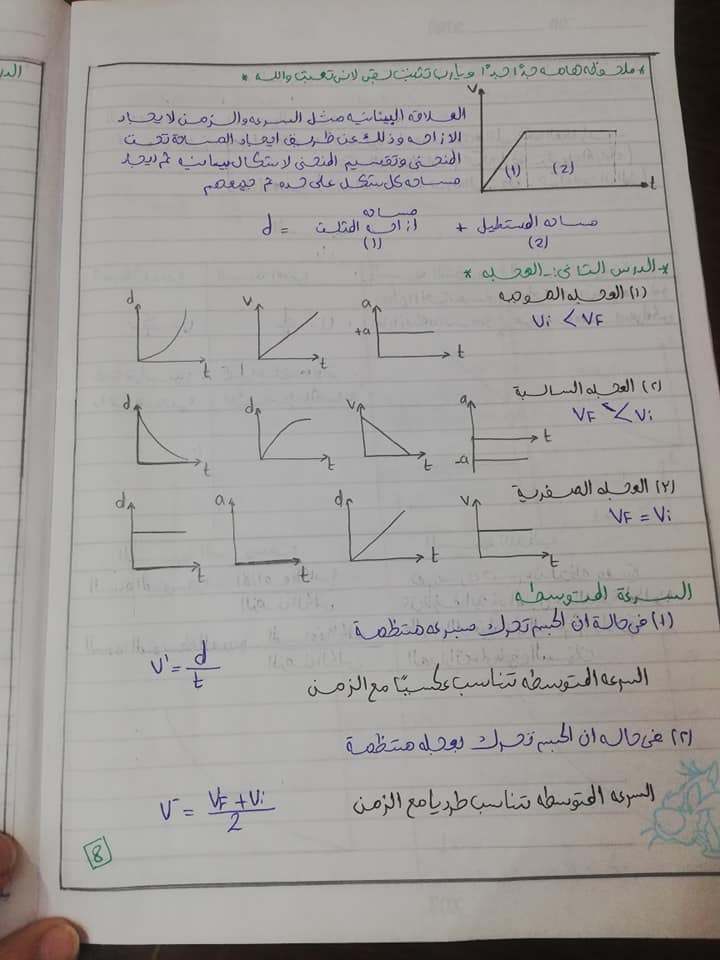 * ملحوظه هامه جدًا جدًا ويارب تثبت لانى تعبت والله *
العلاقه البيانيه مثل السرعه والزمن لايجاد
الازاحه وذلك عن طريق ايجاد المساحة تحت
المنحنى وتقسيم المنحنى لاشكال بيانيه ثم ايجاد
مساحه كل شكل على حده ثم جمعهم
V
(1) (2)
t
d = مساحه المثلث + مساحه المستطيل
(1) (2)
* الدرس الثانى :- العجله *
(1) العجله الموجبه
Vi < VF
d t V t a +a t
(٢) العجله السالبة
VF < Vi
d t d t V t a -a t
(٣) العجله الصفرية
VF = Vi
d t a t d t V t
السرعة المتوسطه
(1) فى حالة ان الجسم تحرك بسرعه منتظمة
V' = d / t
السرعه المتوسطه تتناسب عكسيًا مع الزمن
(٢) فى حاله ان الجسم تحرك بعجله منتظمة
السرعه المتوسطه تتناسب طرديا مع الزمن
V- = VF + Vi / 2
8